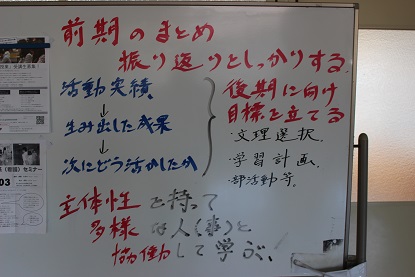 前期のまとめ
振り返りとしっかりする
活動実績
→生み出した成果
→次にどう活かしたか
後期に向け
目標を立てる
・文理選択
・学習計画
・部活動等。
主体性を持って
多様な人(事)と
協働して学ぶ!
セミナー
03